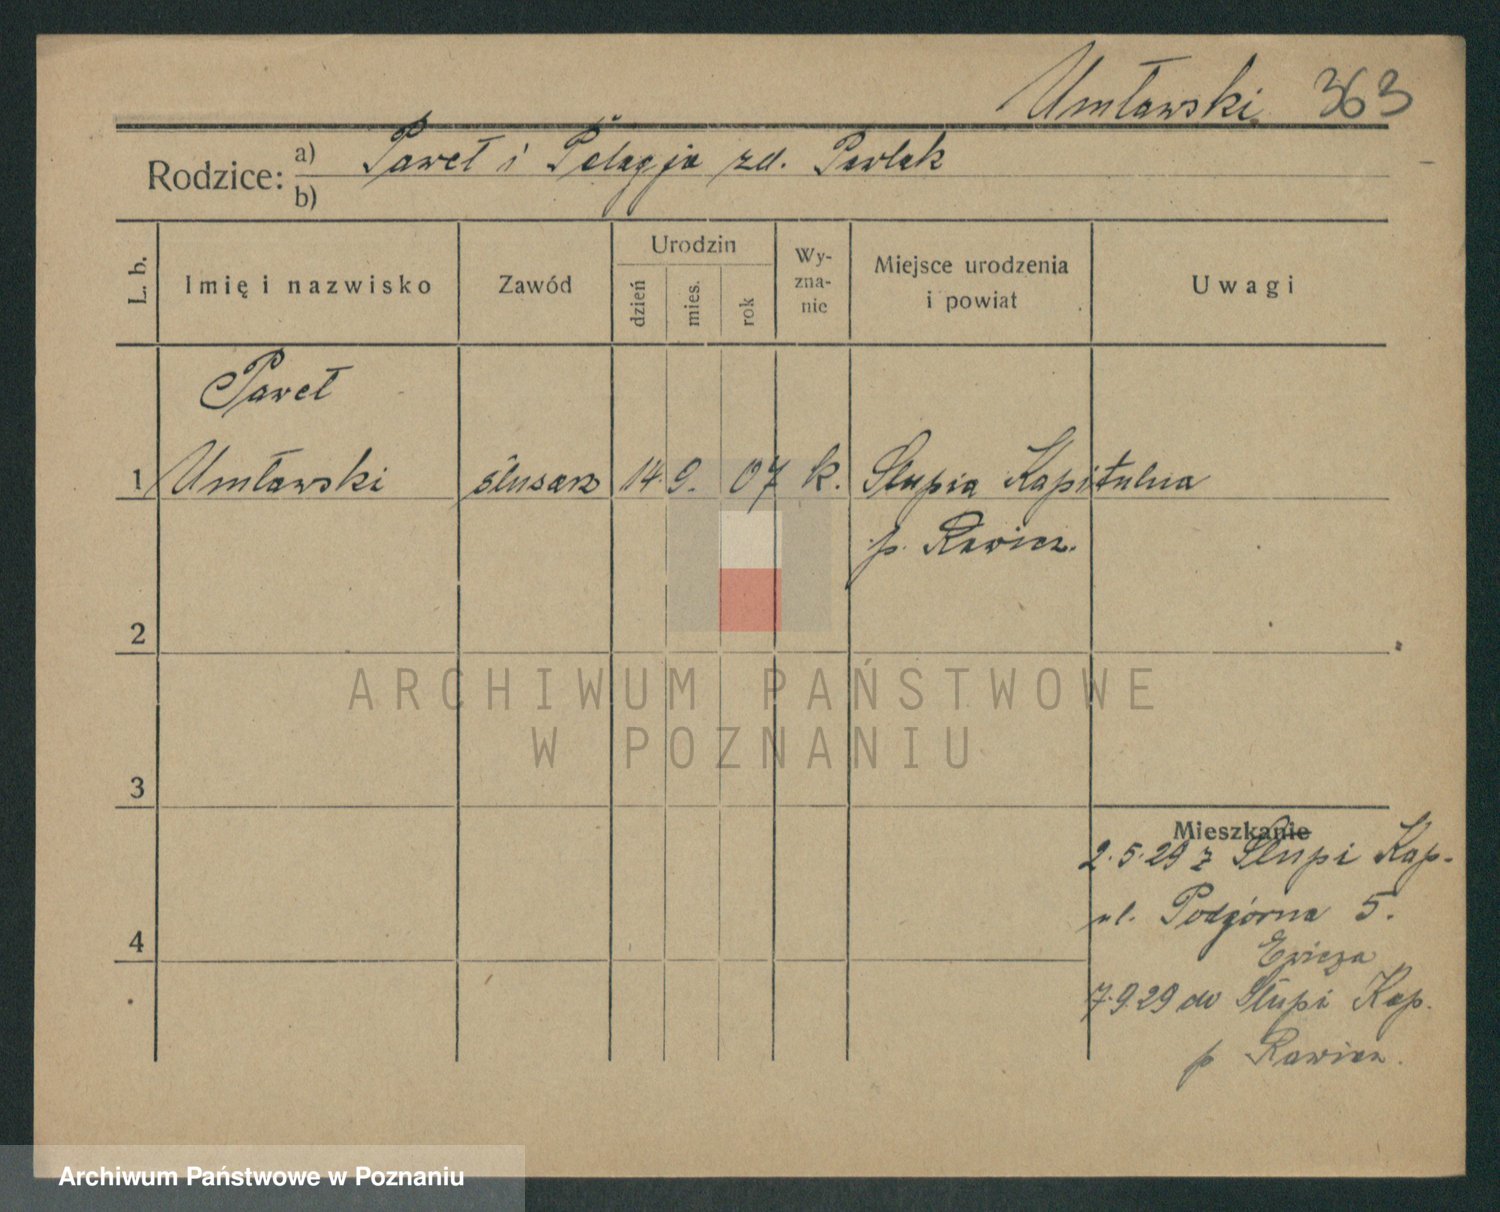 Umławski 363
Rodzice: a) Paweł i Pelagja zd. Pawlak
b)
L. b. Imię i nazwisko Zawód Urodzin dzień mies. rok Wy-zna-nie Miejsce urodzenia i powiat Uwagi
Paweł
1 Umławski ślusarz 14. 9. 07 k. Słupia Kapitulna
p. Rawicz.
2
ARCHIWUM PAŃSTWOWE
W POZNANIU
3
Mieszkanie
2.5.29 z Słupi Kap.
ul. Podgórna 5.
4
7.9.29 do Słupi Kap.
p Rawicz.
Archiwum Państwowe w Poznaniu